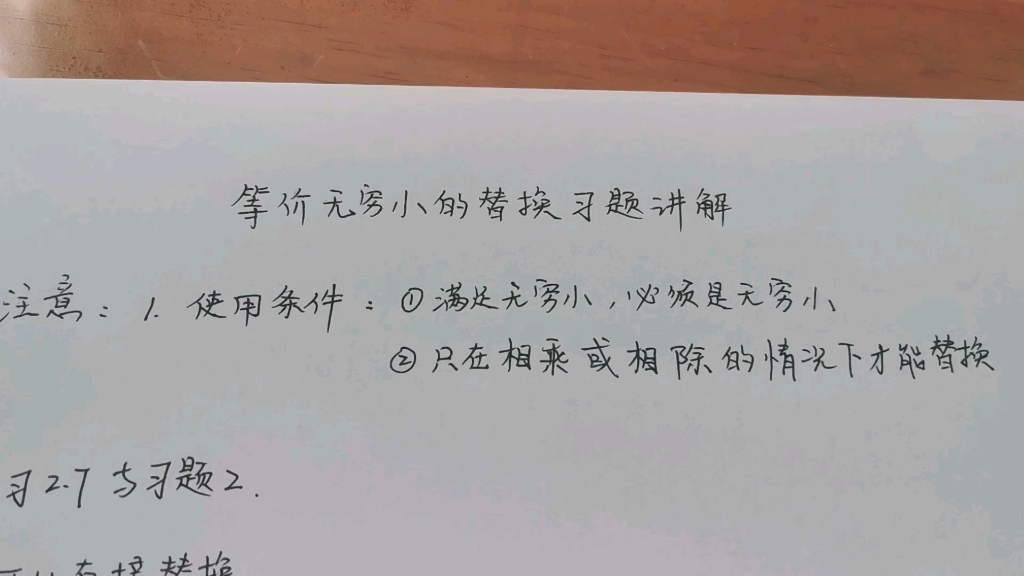 等价无穷小的替换习题讲解
注意：1. 使用条件：①满足无穷小，必须是无穷小、
②只在相乘或相除的情况下才能替换
习2.7与习题2.
替换